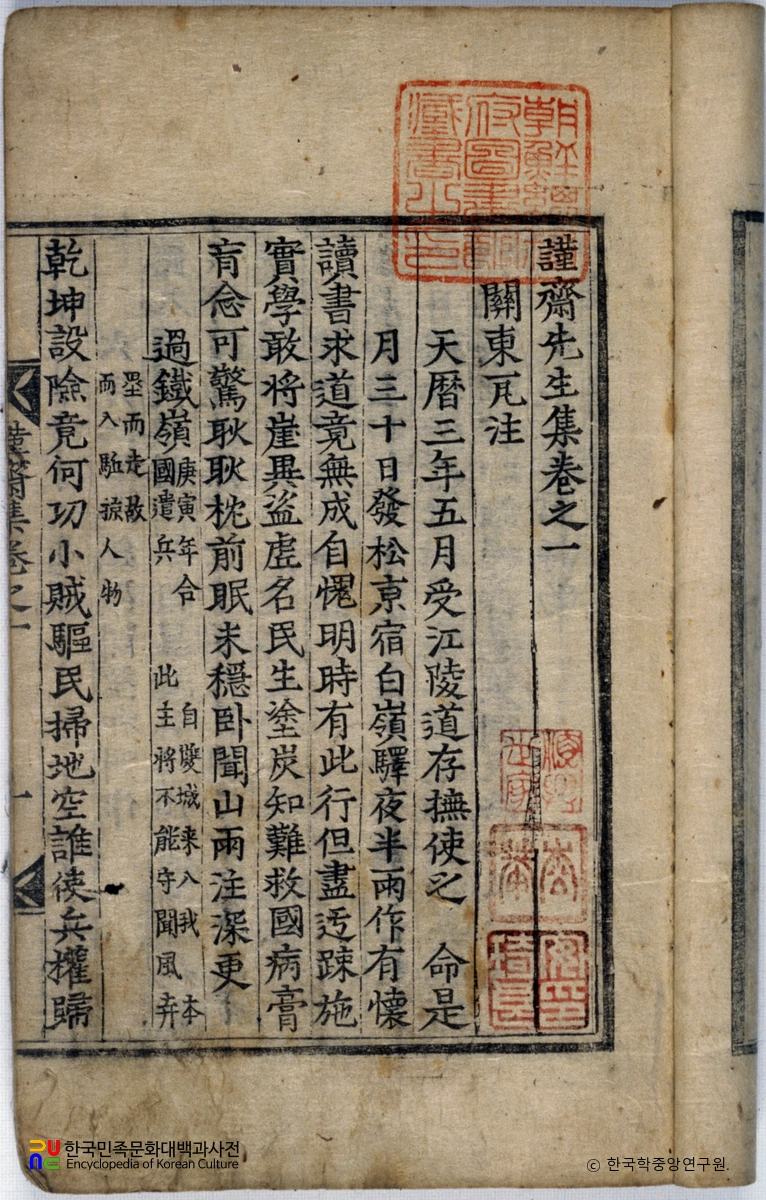 謹齋先生集卷之一
關東瓦注
天暦三年五月受江陵道存撫使之 命是
月三十日發松京宿白嶺驛夜半雨作有懷
讀書求道竟無成自愧明時有此行但盡迃踈施
實學敢將崖異盜虛名民生塗炭知難救國病膏
肓念可驚耿耿枕前眠未穩卧聞山雨注深更
過鐵嶺
庚寅年合 自雙城来入我 本
國遣兵 此主將不能守聞風弃
壘而走故
而入駈掠人物
乾坤設險竟何功小賊驅民掃地空誰使兵權歸
謹齋集卷之一 一
朝鮮總督府圖書館藏書之印
한국민족문화대백과사전
Encyclopedia of Korean Culture
© 한국학중앙연구원.